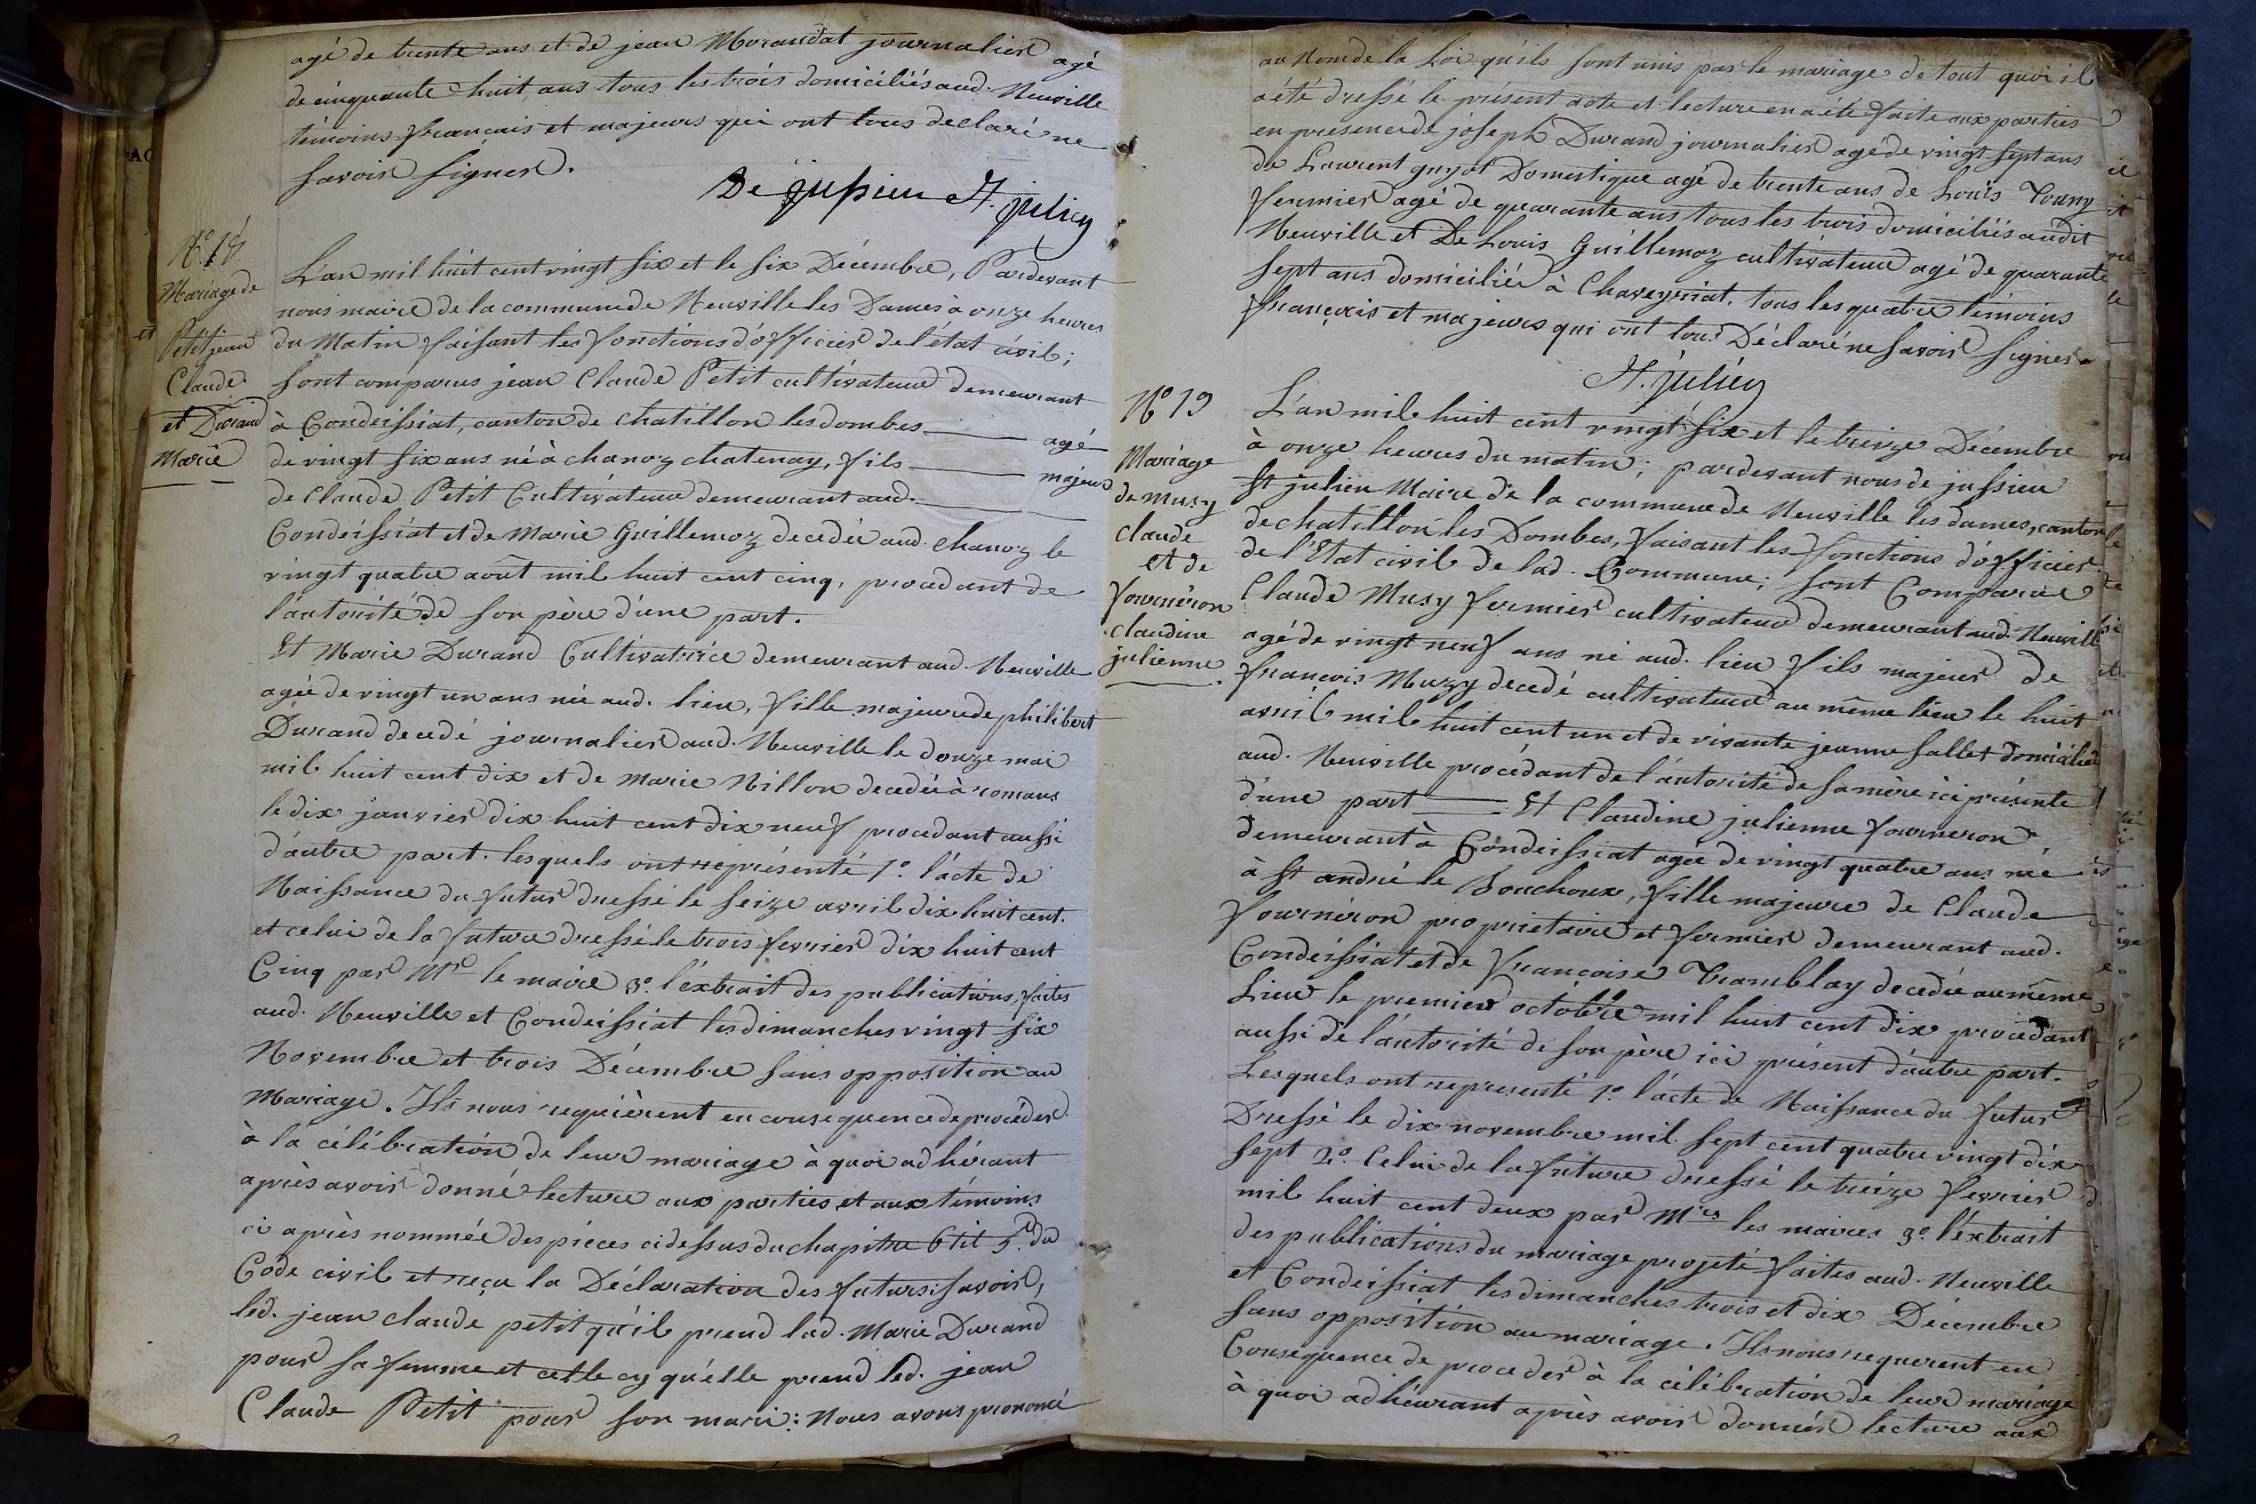 agé de trente ans et de jean Morandat journalier agé
de cinquante huit ans tous les trois domiciliés aud. Neuville
témoins français et majeurs qui ont tous declaré ne
savoir signer.
De jussieu St. julien
N° 18
Mariage de
Petit jean
Claude
et Durand
Marie
L'an mil huit cent vingt six et le six Décembre, Pardevant
nous maire de la commune de Neuville les Dames à onze heures
du Matin faisant les fonctions d'officier de l'état civil;
sont comparus jean Claude Petit cultivateur demeurant
à Condeissiat, canton de chatillon les dombes agé
de vingt six ans né à chanoz chatenay, fils majeur
de Claude Petit Cultivateur demeurant aud.
Condeissiat et de Marie Guillemoz decedée aud. chanoz le
vingt quatre août mil huit cent cinq, procedant de
l'autorité de son père d'une part.
Et Marie Durand Cultivatrice demeurant aud. Neuville
agée de vingt un ans née aud. lieu, fille majeure de philibert
Durand decedé journalier aud. Neuville le douze mai
mil huit cent dix et de Marie Nillon decedée à romans
le dix janvier dix huit cent dix neuf procedant aussi
d'autre part. lesquels ont représenté 1°. l'acte de
Naissance du futur dressé le seize avril dix huit cent.
et celui de la future dressé le trois fevrier dix huit cent
Cinq par Mr le maire 3°. l'extrait des publications, faites
aud. Neuville et Condeissiat les dimanches vingt six
Novembre et trois Décembre sans opposition au
Mariage. Ils nous requièrent en consequence de procéder
à la célébration de leur mariage à quoi adhérant
après avoir donné lecture aux parties et aux témoins
ci après nommés des pièces cidessus du chapitre 6 tit 5. du
Code civil et reçu la Déclaration des futurs: savoir,
led. jean claude petit qu'il prend lad. Marie Durand
pour sa femme et celle cy qu'elle prend led. jean
Claude Petit pour son mari: Nous avons prononcé
au Nom de la Loi qu'ils sont unis par le mariage de tout quoi il
a été dressé le présent acte et lecture en a été faite aux parties
en presence de joseph Durand journalier agé de vingt sept ans
de Laurent guyot Domestique agé de trente ans de Louis
fermier agé de quarante ans tous les trois domiciliés audit
Neuville et De Louis Guillemoz cultivateur agé de quarante
sept ans domicilié à Chaveyriat. tous les quatre témoins
français et majeurs qui ont tous Déclaré ne savoir signer.
St. julien
N° 19
Mariage
de Musy
Claude
et de
fournéron
claudine
julienne.
L'an mil huit cent vingt six et le treize Décembre
à onze heures du matin; pardevant nous de jussieu
St julien Maire de la commune de Neuville les dames, canton
de chatillon les Dombes, faisant les fonctions d'officier
de l'Etat civil de lad. Commune; sont Comparus
Claude Musy fermier cultivateur demeurant aud. Neuville
agé de vingt neuf ans né aud. lieu fils majeur de
françois Muzy decedé cultivateur au même lieu le huit
avril mil huit cent un et de vivante jeanne sallet domiciliée
aud. Neuville procédant de l'autorité de sa mère ici présente
d'une part Et Claudine julienne fourneron
demeurant à Condeissiat agée de vingt quatre ans née
à St andré le Bouchoux, fille majeure de Claude
fournéron proprietaire et fermier demeurant aud.
Condeissiat et de françoise Tramblay decedée au même
Lieu le premier octobre mil huit cent dix procedant
aussi de l'autorité de son père ici présent d'autre part.
Lesquels ont representé 1°. l'acte de Naissance du futur
Dressé le dix novembre mil sept cent quatre vingt dix
sept 2°. Celui de la future dressé le treize fevrier
mil huit cent deux par Mrs les maires 3°. l'extrait
des publications du mariage projeté faites aud. Neuville
et Condeissiat les dimanches trois et dix Décembre
sans opposition au mariage. Ils nous requerent en
Consequence de proceder à la célébration de leur mariage
à quoi adhérant après avoir donné lecture aux